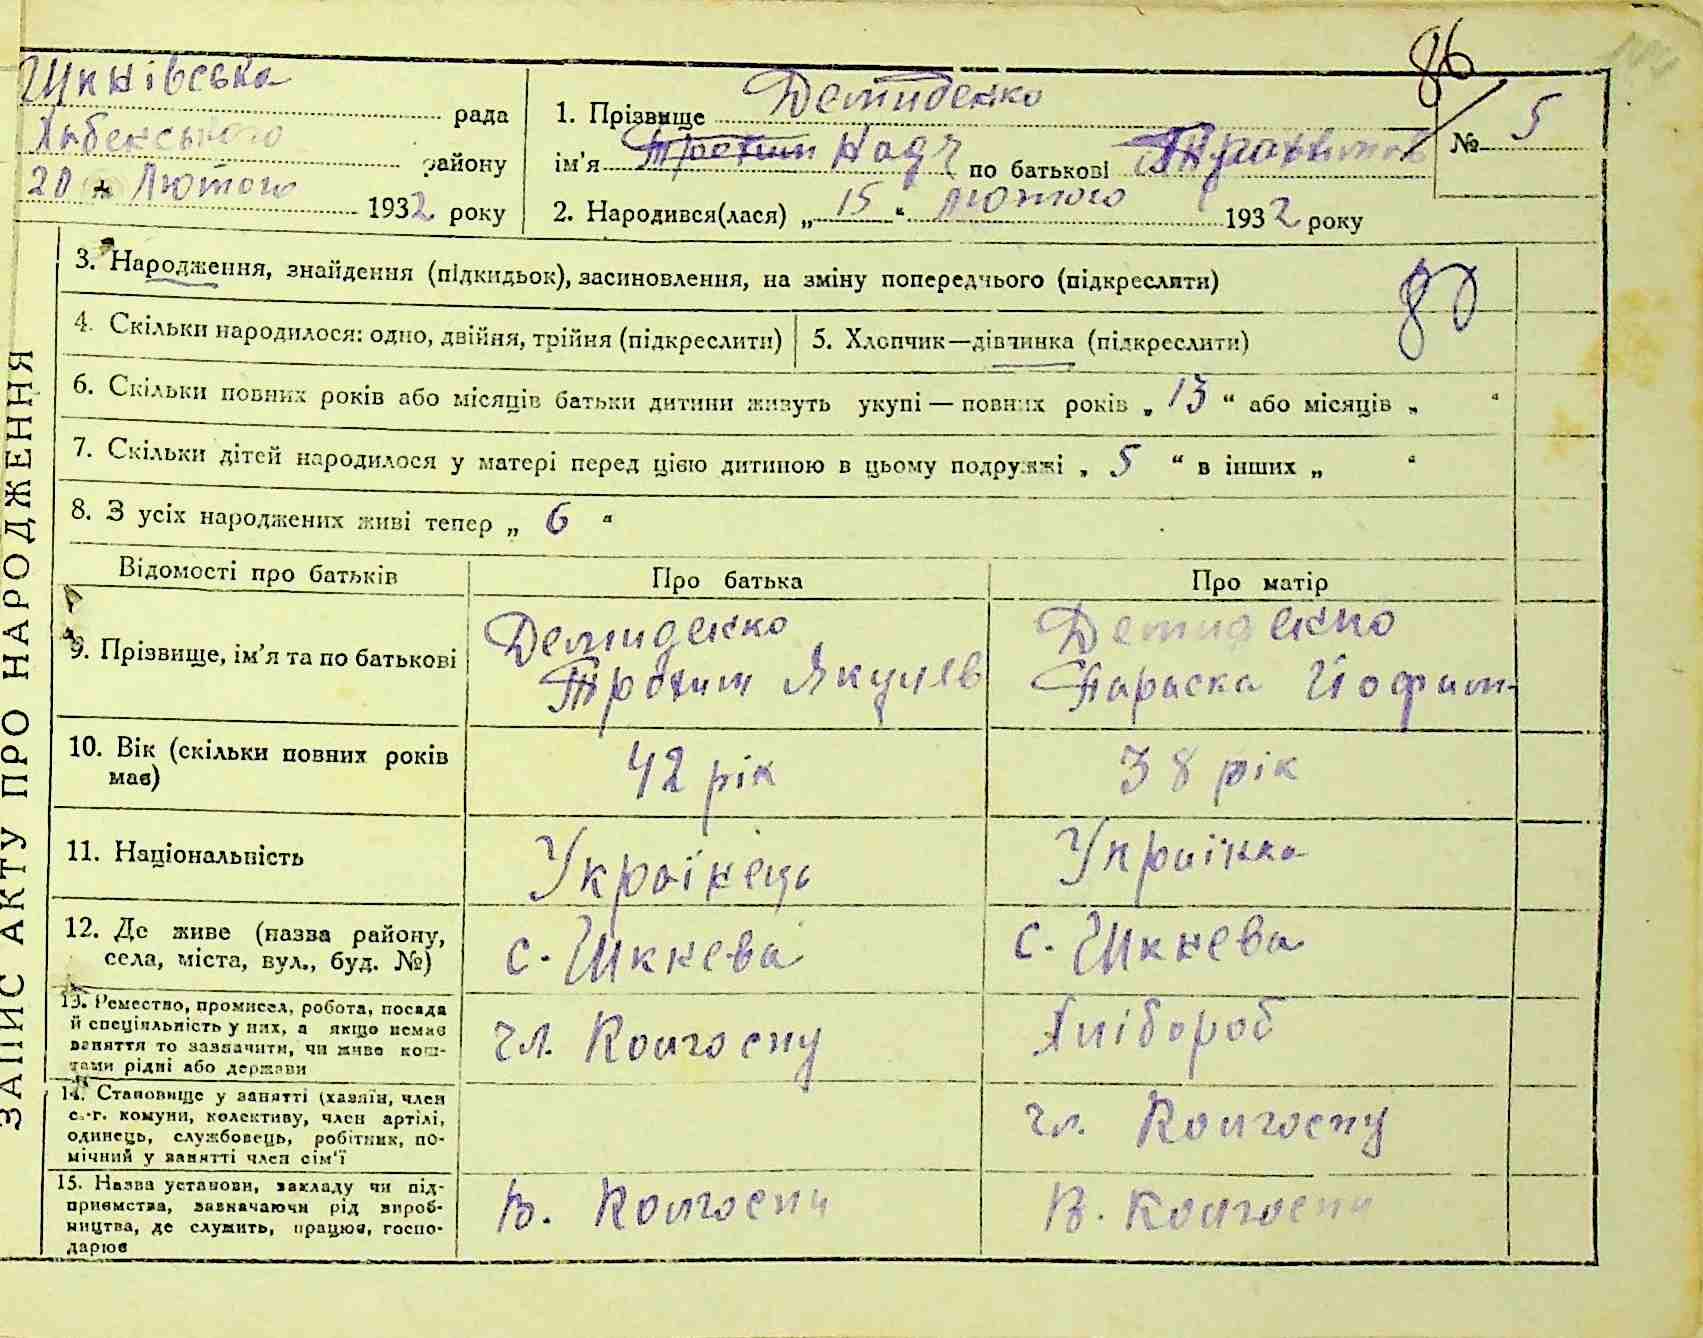 86
Шкнівська рада
Хабенського району
20 Лютого 1932 року
1. Прізвище Демиденко
ім'я Трохим Надч по батькові
№ 5
2. Народився(лася) „ 15 “ лютого 1932 року
ЗАПИС АКТУ ПРО НАРОДЖЕННЯ
3. Народження, знайдення (підкидьок), засиновлення, на зміну попереднього (підкреслити)
80
4. Скільки народилося: одно, двійня, трійня (підкреслити)
5. Хлопчик—дівчинка (підкреслити)
6. Скільки повних років або місяців батьки дитини живуть укупі — повних років „ 13 “ або місяців „ “
7. Скільки дітей народилося у матері перед цією дитиною в цьому подружжі „ 5 “ в інших „ “
8. З усіх народжених живі тепер „ 6 “
Відомості про батьків
Про батька
Про матір
9. Прізвище, ім'я та по батькові
Демиденко
Трохим Якулів
Демиденко
Параска Йофим-
10. Вік (скільки повних років
має)
42 рік
38 рік
11. Національність
Українець
Українка
12. Де живе (назва району,
села, міста, вул., буд. №)
с. Шкнева
с. Шкнева
13. Ремество, промисел, робота, посада
й спеціяльність у них, а якщо немає
заняття то зазначити, чи живе кош-
тами рідні або держави
чл. Колгоспу
Хлібороб
14. Становище у занятті (хазяїн, член
с.-г. комуни, колективу, член артілі,
одинець, службовець, робітник, по-
мічний у занятті член сім'ї
чл. Колгоспу
15. Назва установи, закладу чи під-
приємства, зазначаючи рід вироб-
ництва, де служить, працює, госпо-
дарює
В. Колгоспи
В. Колгоспи